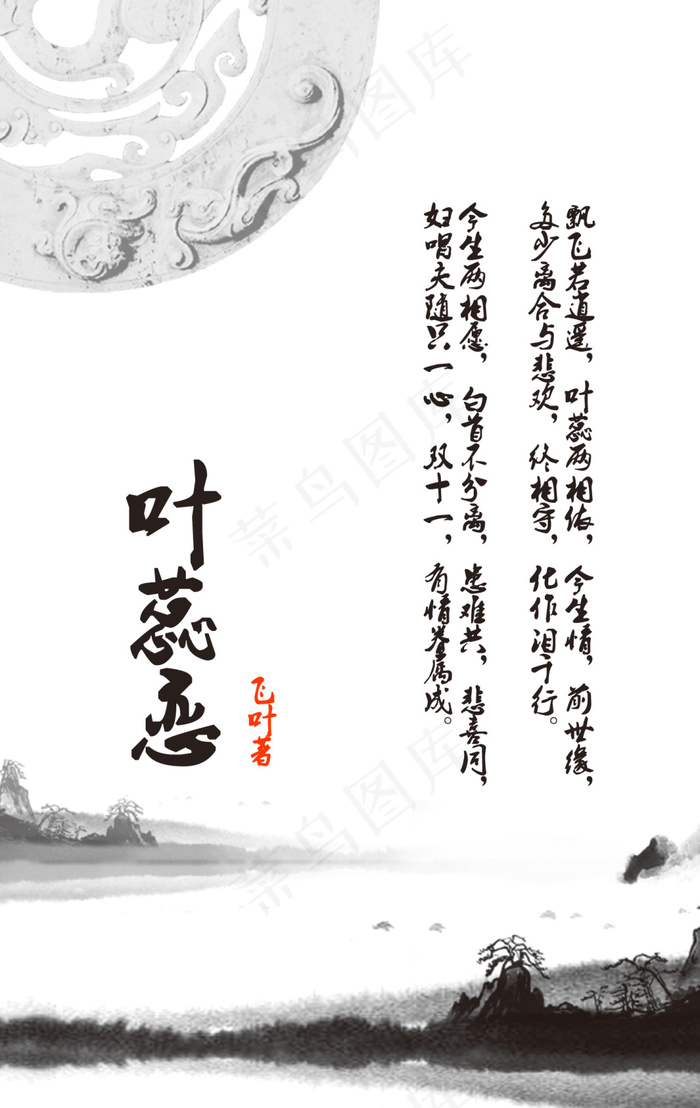 飘飞若逍遥，叶蕊两相依，今生情，前世缘，
多少离合与悲欢，终相守，化作泪千行。
今生两相愿，白首不分离，患难共，悲喜同，
妇唱夫随只一心，双十一，有情眷属成。
叶蕊恋
飞叶著
菜鸟图库
菜鸟图库
菜鸟图库
菜鸟图库